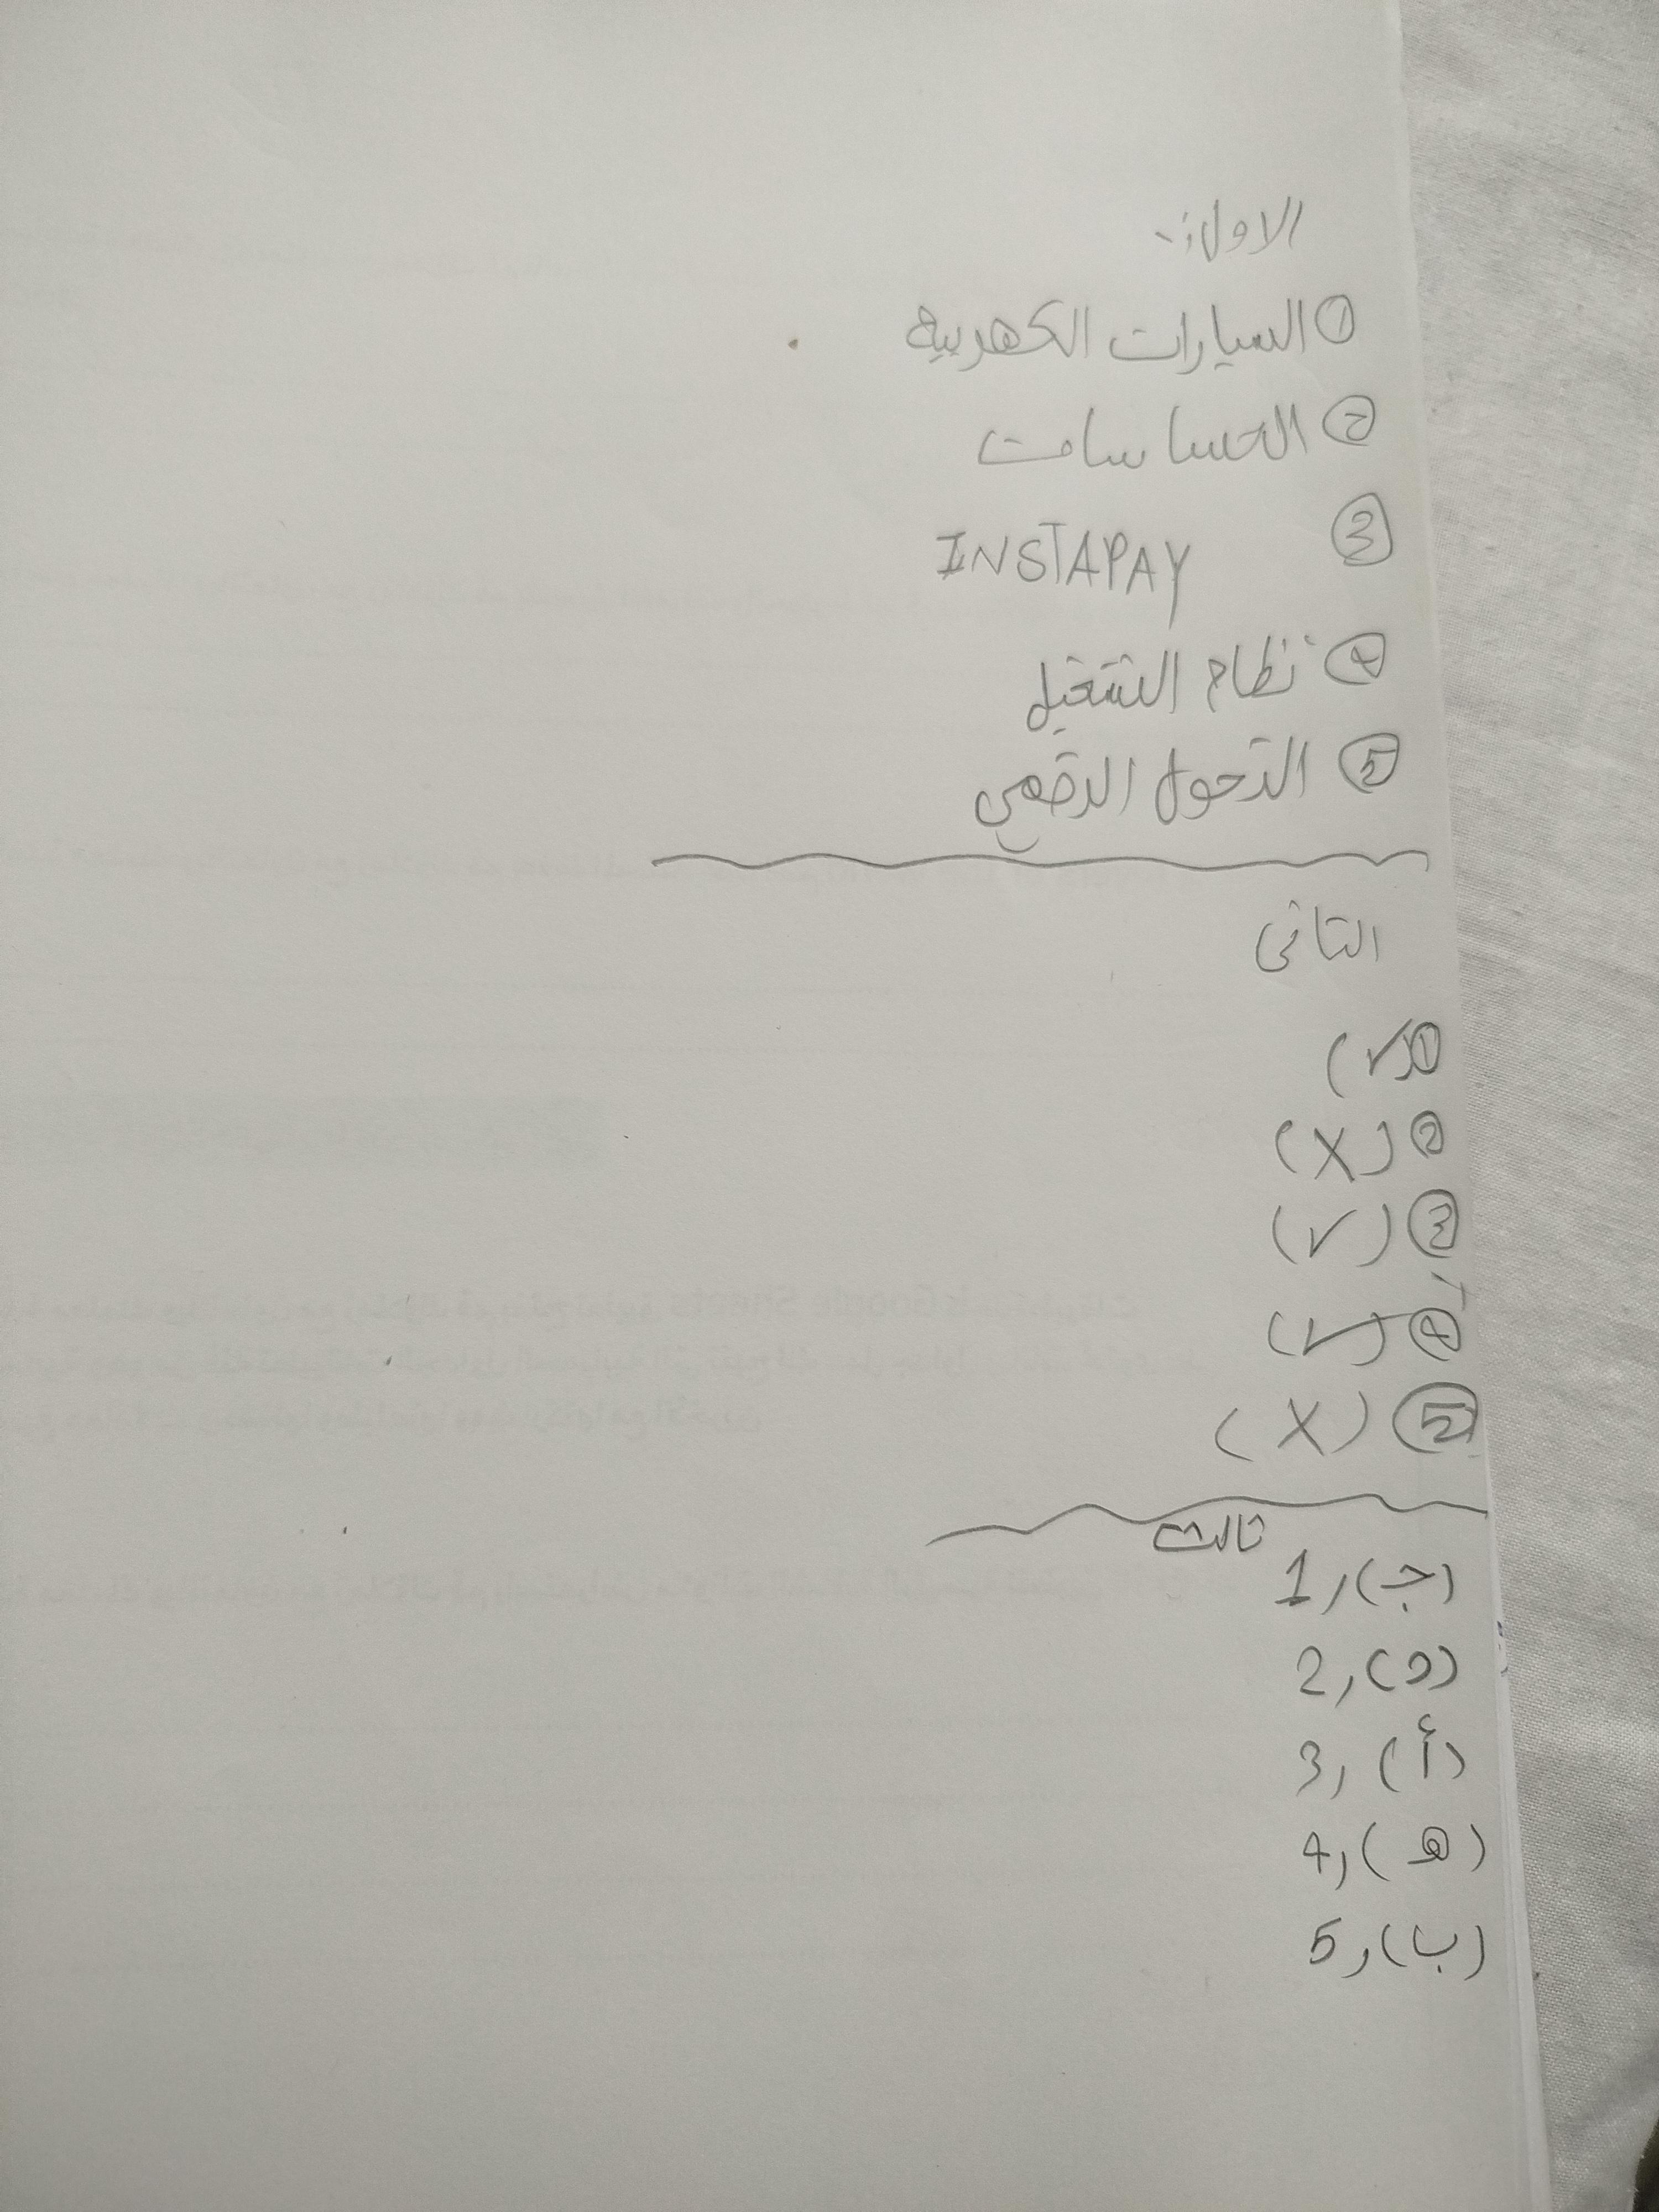 الاول:-
① السيارات الكهربيه
② الحسا سات
③ INSTAPAY
④ نظام التشغيل
⑤ التحول الرقمي
التانى
① (✓)
② (X)
③ (✓)
④ (✓)
⑤ (X)
تالت
1, (جـ)
2, (د)
3, (أ)
4, (ه)
5, (ب)